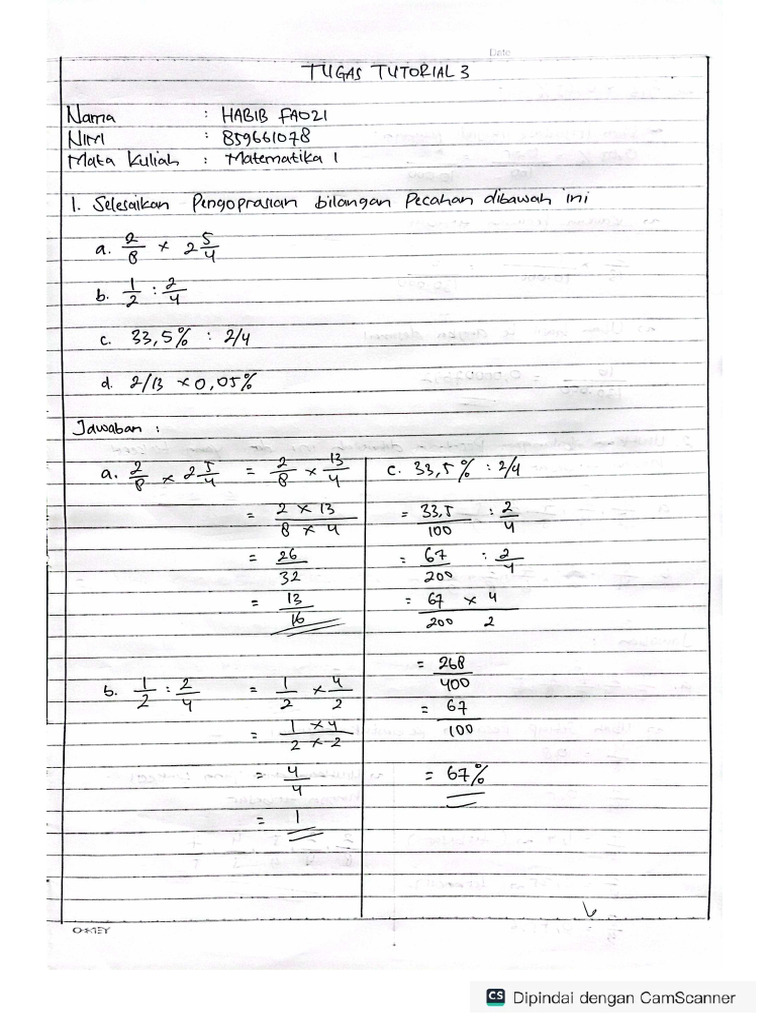 Date
TUGAS TUTORIAL 3
Nama : HABIB FAOZI
NIM : 859661078
Mata Kuliah : Matematika 1
1. Selesaikan Pengoprasian bilangan Pecahan dibawah ini
a. 2/8 × 2 5/4
b. 1/2 : 2/4
c. 33,5% : 2/4
d. 2/13 × 0,05%
Jawaban :
a. 2/8 × 2 5/4 = 2/8 × 13/4
= 2 × 13 / 8 × 4
= 26/32
= 13/16
b. 1/2 : 2/4 = 1/2 × 4/2
= 1 × 4 / 2 × 2
= 4/4
= 1
c. 33,5% : 2/4
= 33,5/100 : 2/4
= 67/200 : 2/4
= 67 × 4 / 200 2
= 268/400
= 67/100
= 67%
CS Dipindai dengan CamScanner